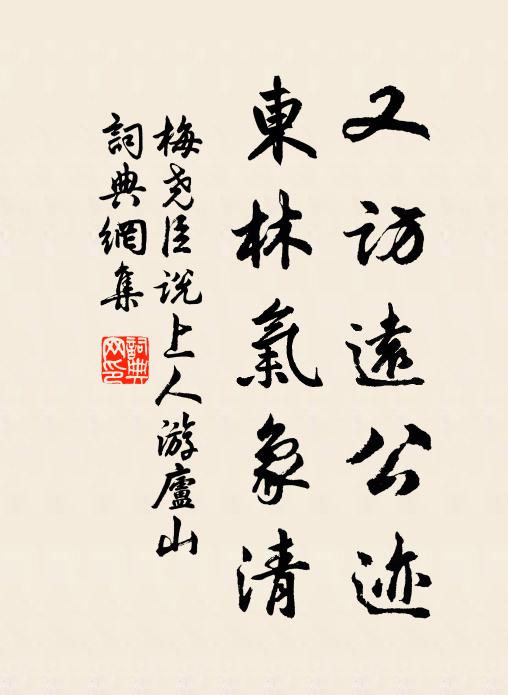 又訪遠公迹
東林氣象清
梅尧臣説上人游廬山
詞典網集
詞典
网印